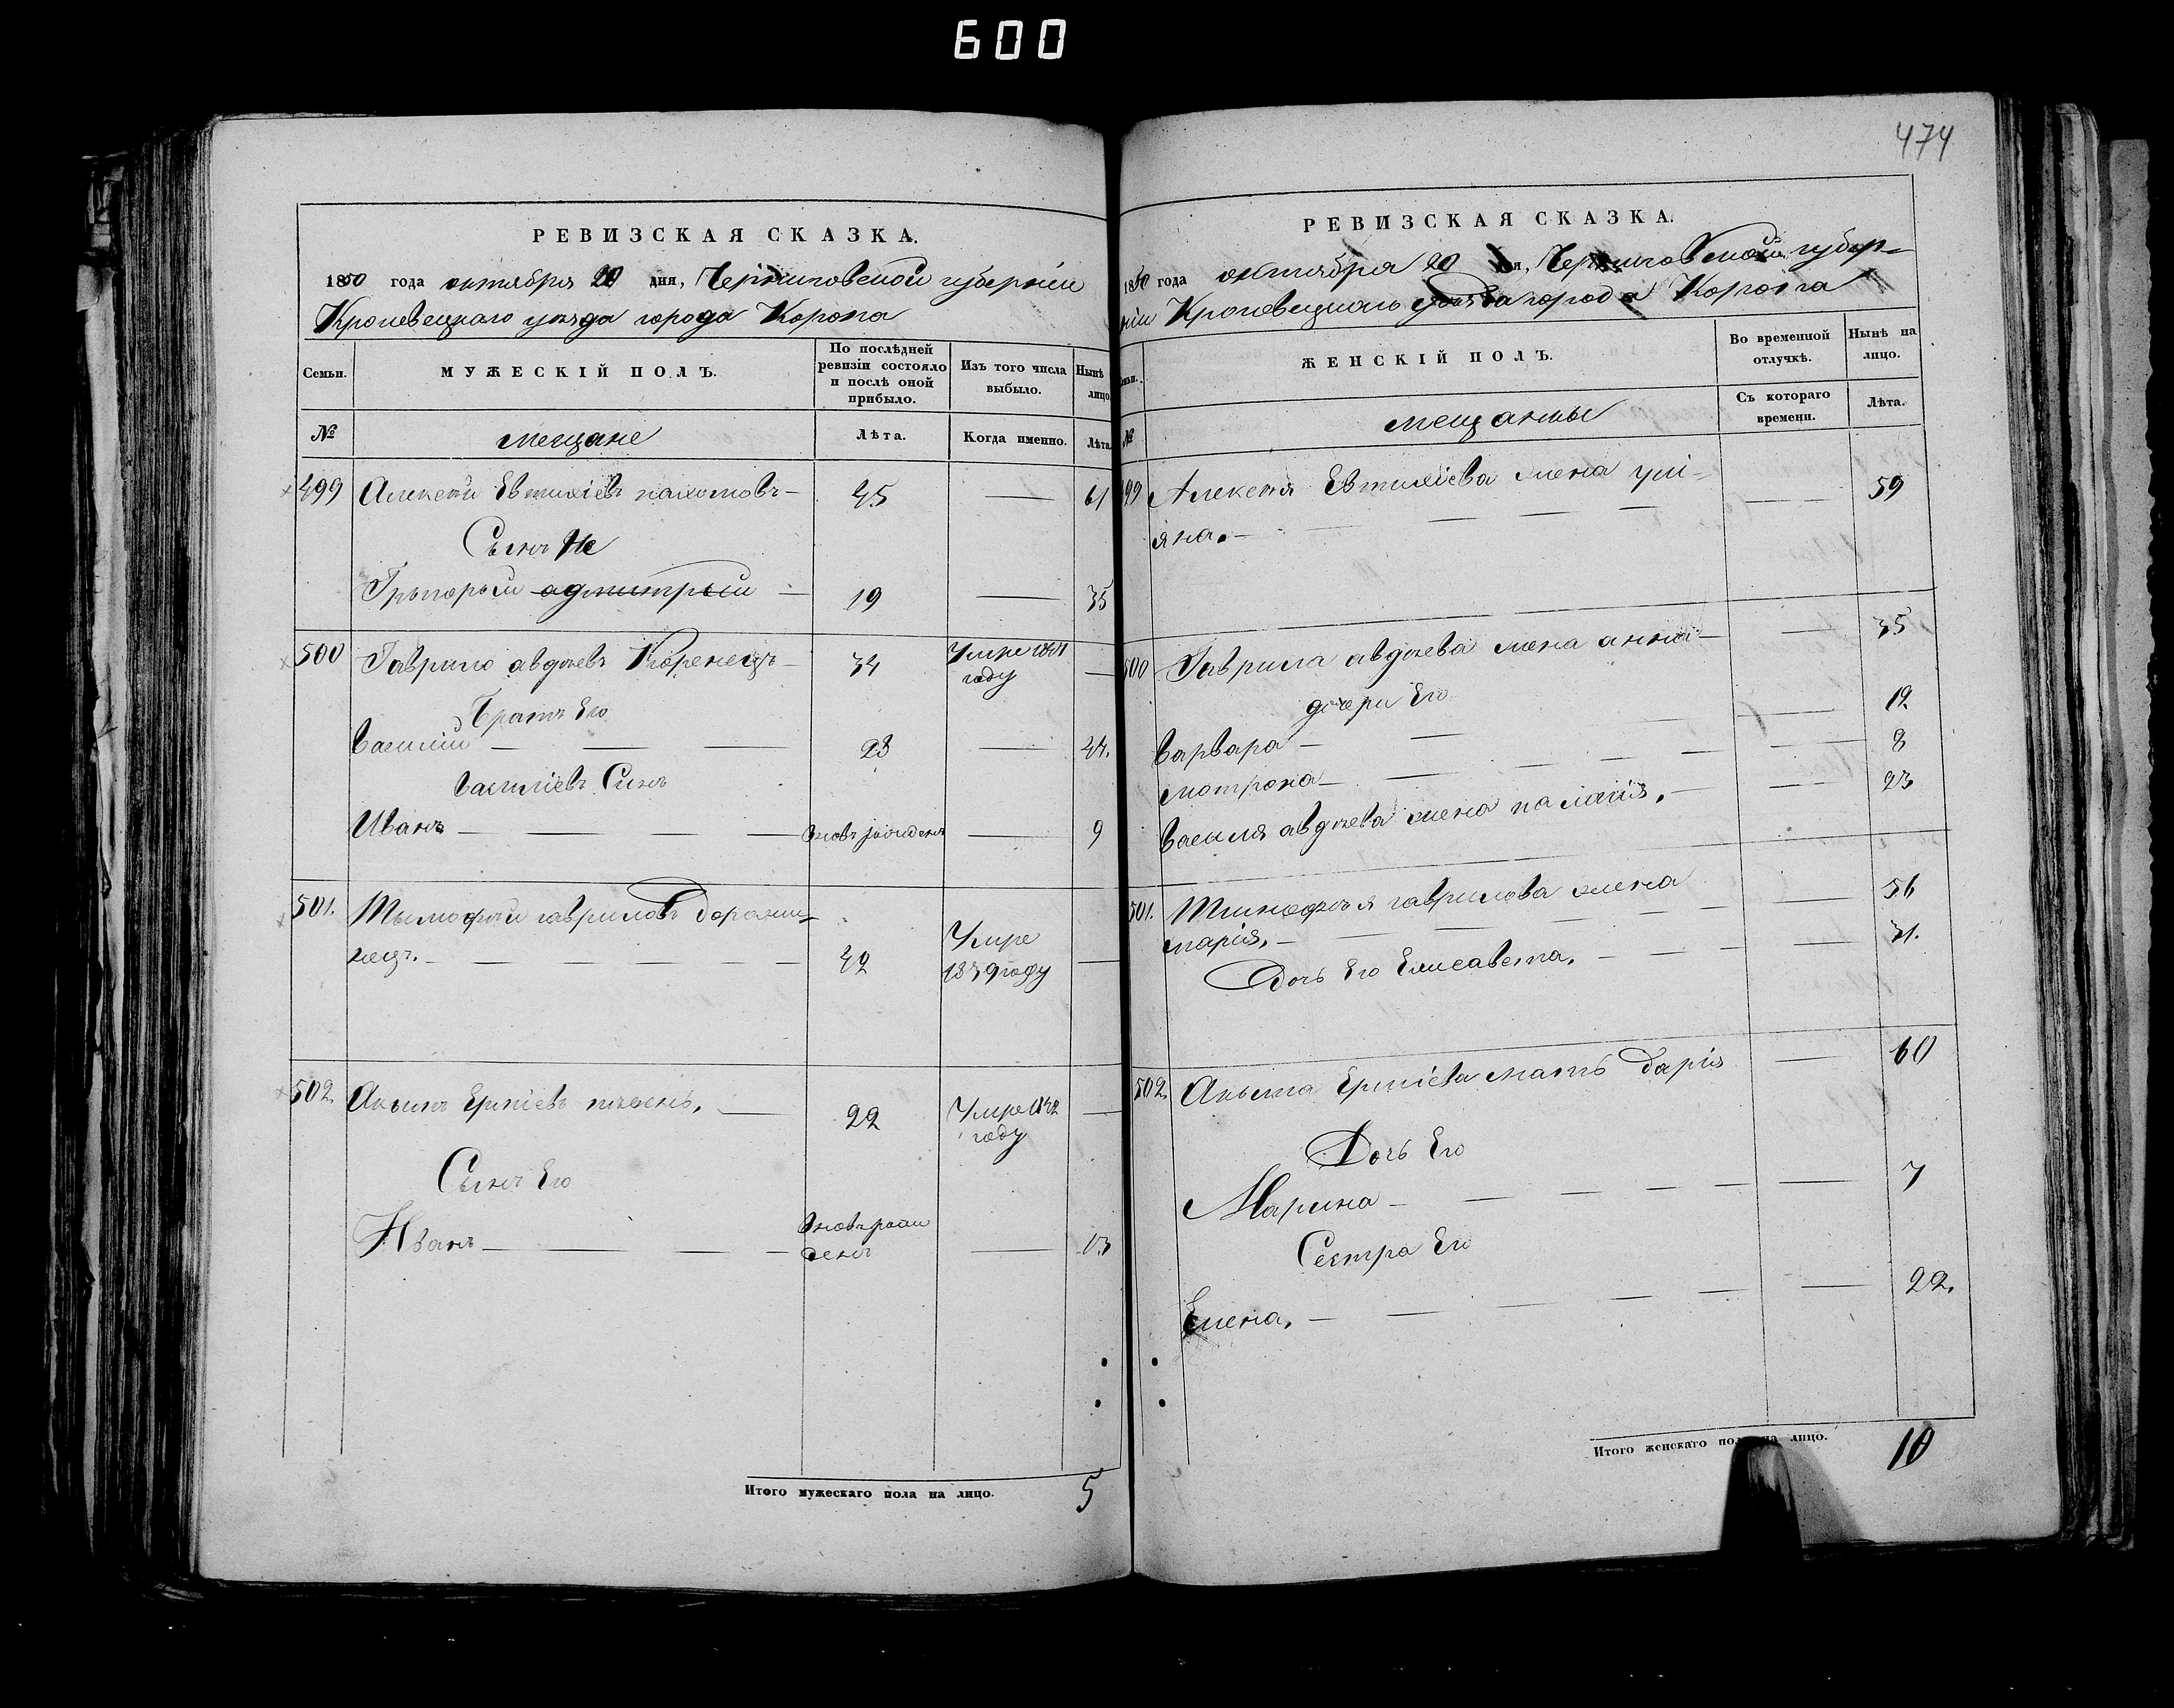 600
474
РЕВИЗСКАЯ СКАЗКА.
1850 года октября 20 дня, Черниговской губернии
Кролевецкаго уезда города Коропа
Семьи.
МУЖЕСКІЙ ПОЛЪ.
По послѣдней ревизіи состояло и послѣ оной прибыло.
Изъ того числа выбыло.
Нынѣ лицо.
№
мещане
Лѣта.
Когда именно.
Лѣта
499 Алексѣй Евтихіевъ пахомовъ 45 — 61
Сынъ
Григорый адмитрый 19 — 35
500 Гаврило авдѣевъ Коренецъ 34 Умре 1841 году —
Братъ Его
Василій — 28 — 44.
василіевъ Синъ
Иванъ — вновь рожденъ — 9
501. Тымофѣй гавриловъ
42 Умре 1839 году —
502. Акымъ 22 Умре 1842 году —
Сынъ Его
Иванъ — вновь рожденъ — 13
Итого мужескаго пола на лицо. 5
РЕВИЗСКАЯ СКАЗКА.
1850 года октября 20 дня, Черниговской губер-
ніи Кролевецкаго уезда города Коропа
ЖЕНСКІЙ ПОЛЪ.
Во временной отлучкѣ.
Нынѣ на лицо.
№
мещанки
Съ котораго времени.
Лѣта.
99 Алексѣя Евтихіева жена улі-
яна. — 59
500 Гаврила авдѣева жена анна — 35
дочери Его
Варвара — 12
мотрона — 8
Василя авдѣева жена палагія. — 23
501. Тимофѣя гаврилова жена
марія. — 56
Дочь Его Елисавета. — 31.
502. Акыма мать Дарія — 60
Дочь Его
Марина — 7
Сестра Его
Елена. — 22.
Итого женскаго пола на лицо. 10